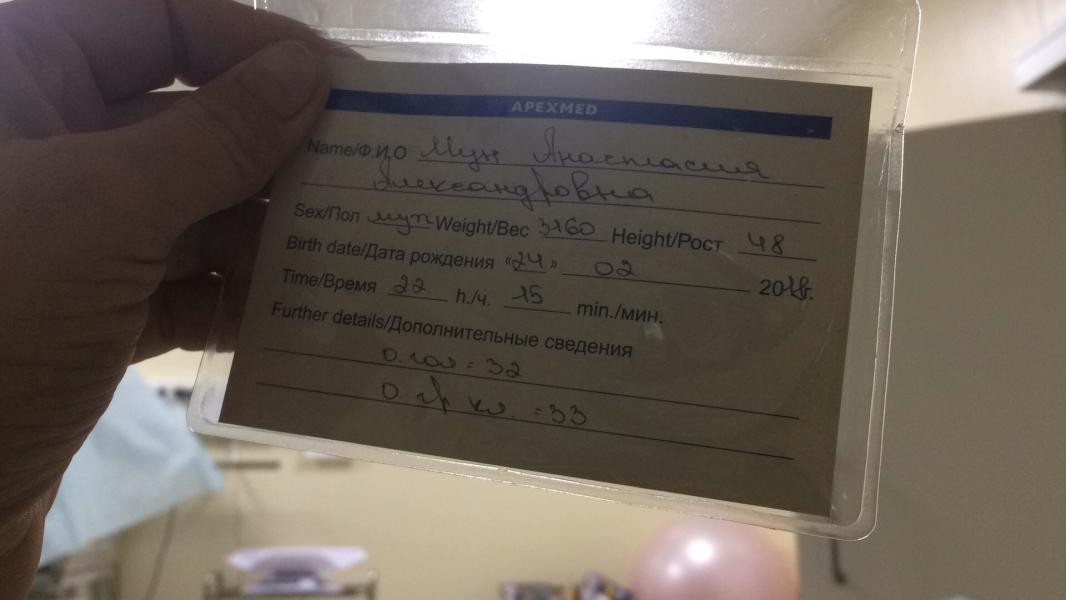 APEXMED
Name/Ф.И.О Мун Анастасия
Александровна
Sex/Пол муж Weight/Вес 3160 Height/Рост 48
Birth date/Дата рождения «24» 02 2018г.
Time/Время 22 h./ч. 15 min./мин.
Further details/Дополнительные сведения
О. гол = 32
О. гр кл. = 33